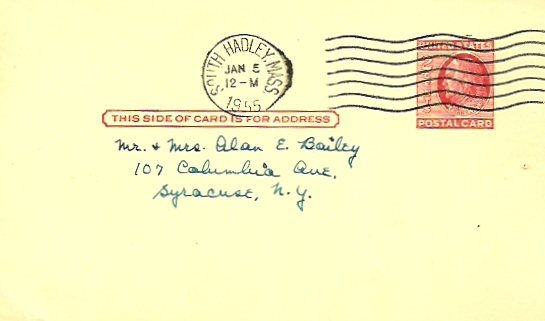 SOUTH HADLEY, MASS.
JAN 5
12-M
1955
UNITED STATES
POSTAL CARD
THIS SIDE OF CARD IS FOR ADDRESS
Mr. & Mrs. Alan E. Bailey
107 Columbia Ave.
Syracuse, N.Y.